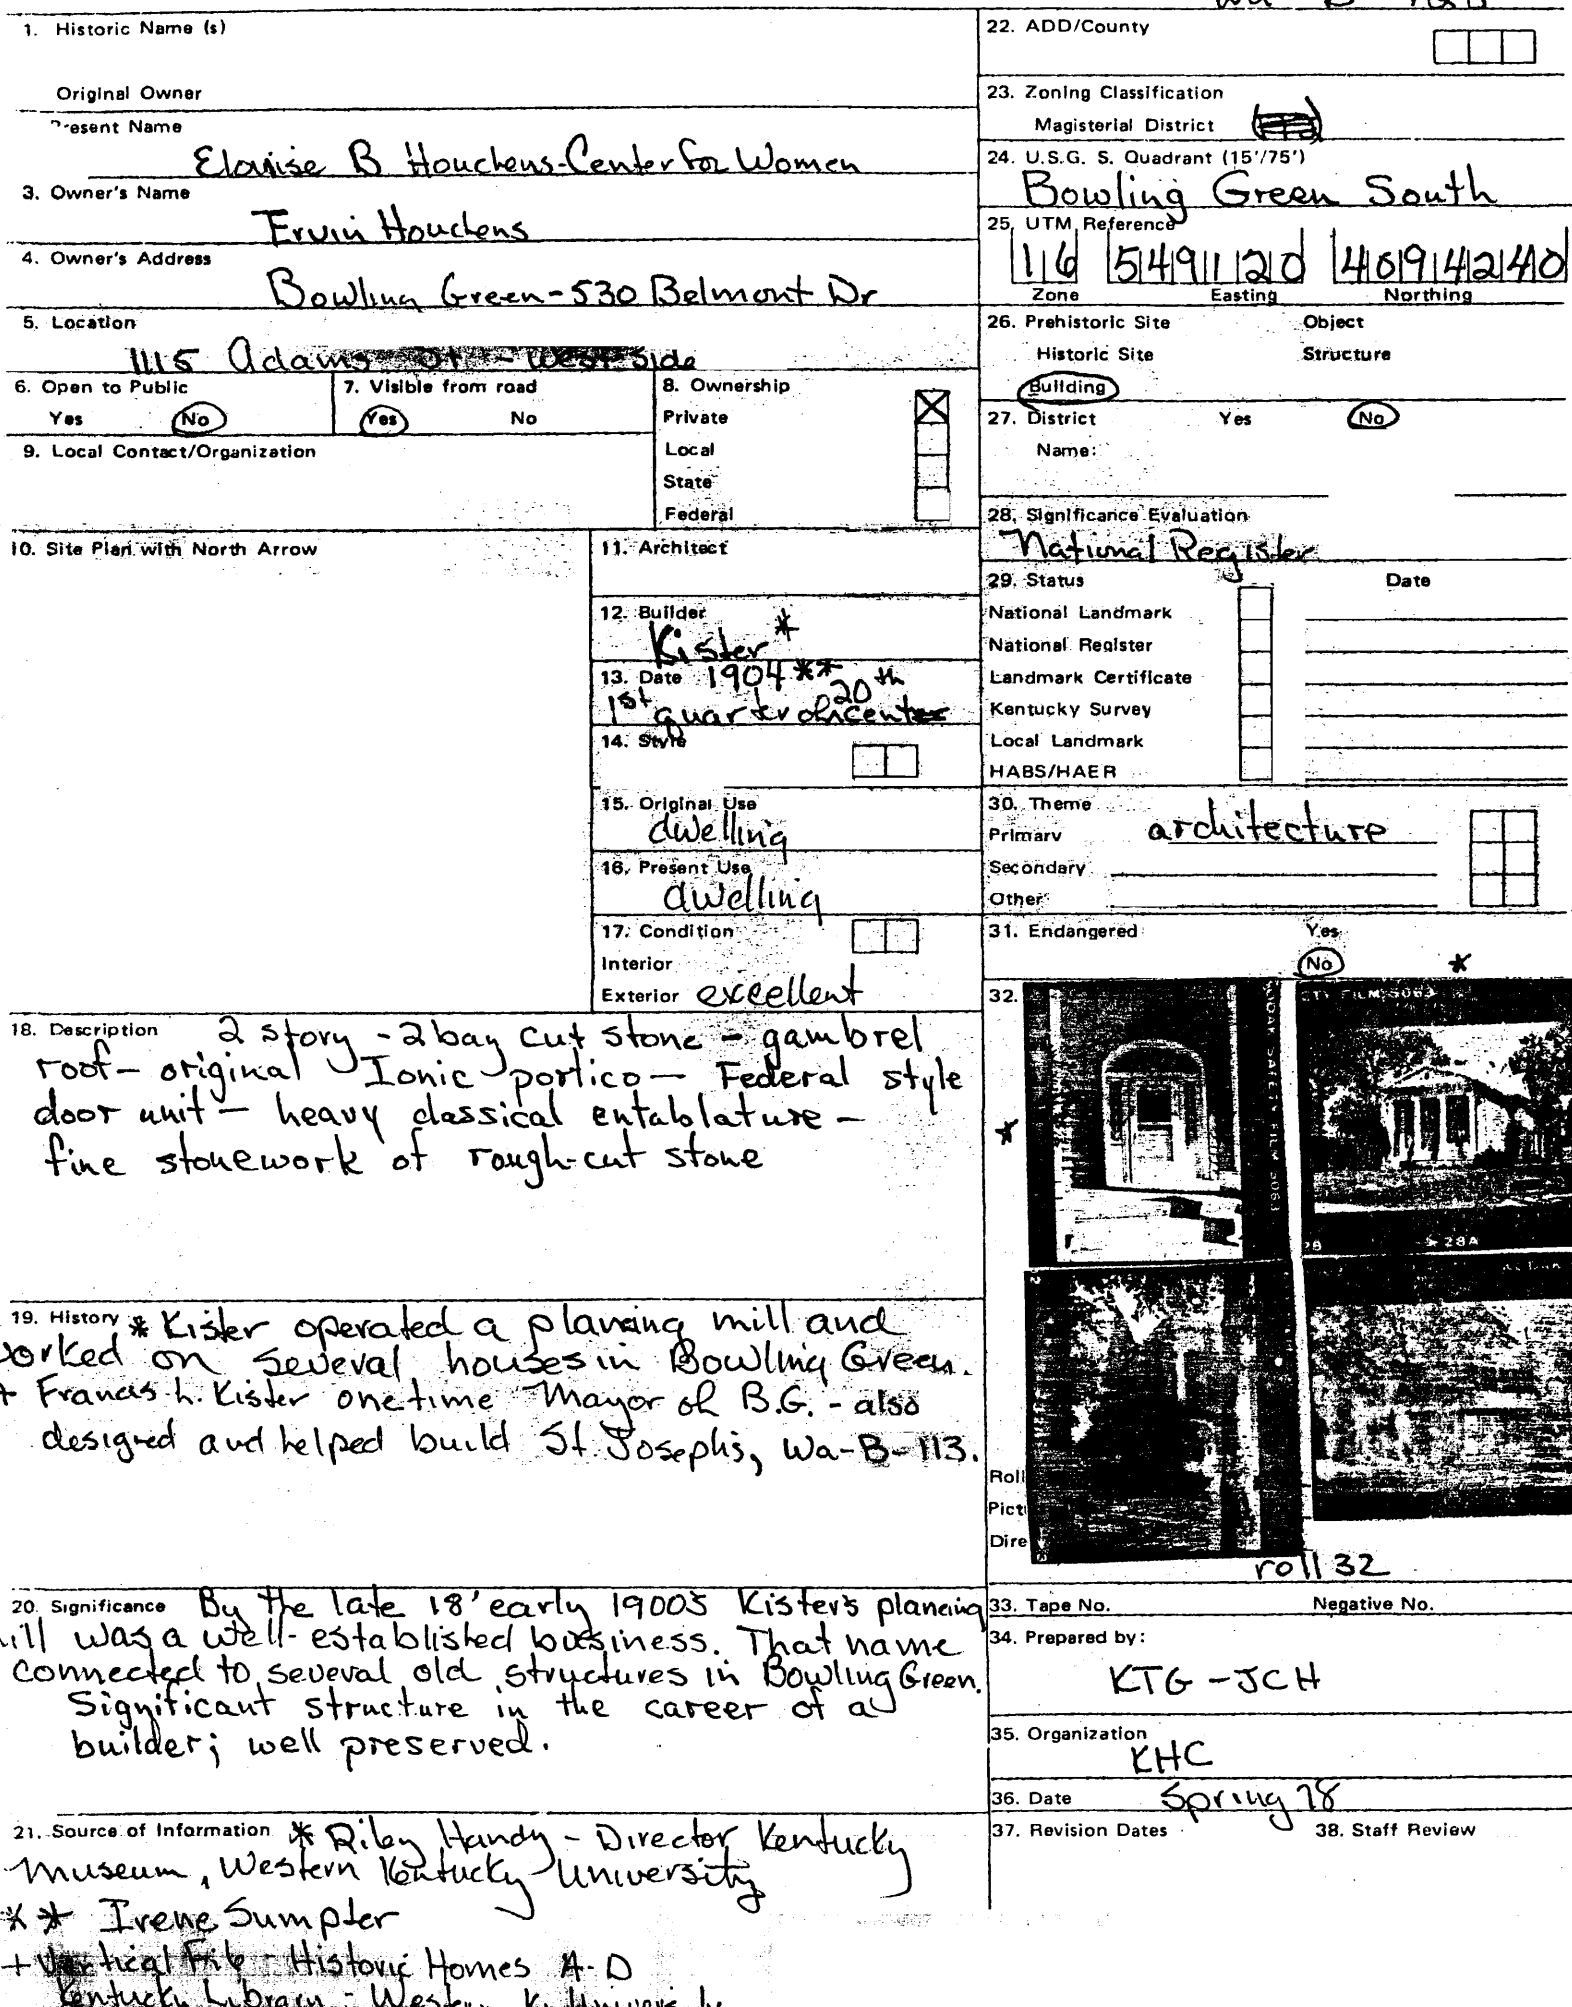 1. Historic Name (s)
Original Owner
Present Name
Elouise B Houchens-Center for Women
3. Owner's Name
Ervin Houchens
4. Owner's Address
Bowling Green-530 Belmont Dr
5. Location
1115 Adams St - West Side
6. Open to Public
Yes No
7. Visible from road
Yes No
8. Ownership
Private
Local
State
Federal
9. Local Contact/Organization
10. Site Plan with North Arrow
11. Architect
12. Builder
Kister *
13. Date 1904 **
1st quarter of 20th cent
14. Style
15. Original Use
dwelling
16. Present Use
dwelling
17. Condition
Interior
Exterior excellent
18. Description 2 story - 2 bay cut stone - gambrel
roof - original Ionic portico - Federal style
door unit - heavy classical entablature -
fine stonework of rough-cut stone
19. History * Kister operated a planing mill and
worked on several houses in Bowling Green.
+ Francis L. Kister one time Mayor of B.G. - also
designed and helped build St. Joseph's, Wa-B-113.
20. Significance By the late 18' early 1900s Kister's planeing
mill was a well-established business. That name
connected to several old structures in Bowling Green.
Significant structure in the career of a
builder; well preserved.
21. Source of Information * Riley Handy - Director Kentucky
Museum, Western Kentucky University
** Irene Sumpter
+ Vertical File - Historic Homes A-D
Kentucky Library - Western Ky University
22. ADD/County
23. Zoning Classification
Magisterial District
24. U.S.G. S. Quadrant (15'/75')
Bowling Green South
25. UTM Reference
16 549120 4094240
Zone Easting Northing
26. Prehistoric Site Object
Historic Site Structure
Building
27. District Yes No
Name:
28. Significance Evaluation
National Register
29. Status Date
National Landmark
National Register
Landmark Certificate
Kentucky Survey
Local Landmark
HABS/HAER
30. Theme
Primary architecture
Secondary
Other
31. Endangered Yes
No *
32.
*
FILM 5063
SAFETY FILM 5063
28A
Roll
Pict
Dire
roll 32
33. Tape No. Negative No.
34. Prepared by:
KTG - JCH
35. Organization
KHC
36. Date Spring 78
37. Revision Dates 38. Staff Review